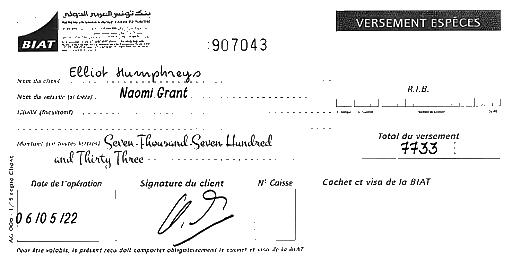 بنك تونس العربي الدولي
BIAT
:907043
VERSEMENT ESPÈCES
Nom du client Elliot Humphreys
Nom du verseur (si tiers) Naomi Grant
R.I.B.
Montant (en toutes lettres) Seven-Thousand-Seven Hundred
and Thirty Three
Total du versement
7733
Date de l'opération
Signature du client
N° Caisse
Cachet et visa de la BIAT
06/05/22
Pour être valable, le présent reçu doit comporter obligatoirement le cachet et visa de la BIAT